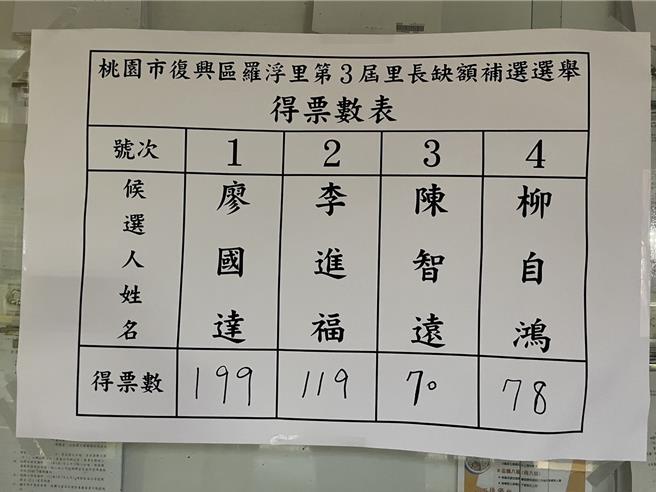 桃園市復興區羅浮里第3屆里長缺額補選選舉
得票數表
號次 1 2 3 4
候選人姓名 廖國達 李進福 陳智遠 柳自鴻
得票數 199 119 70 78